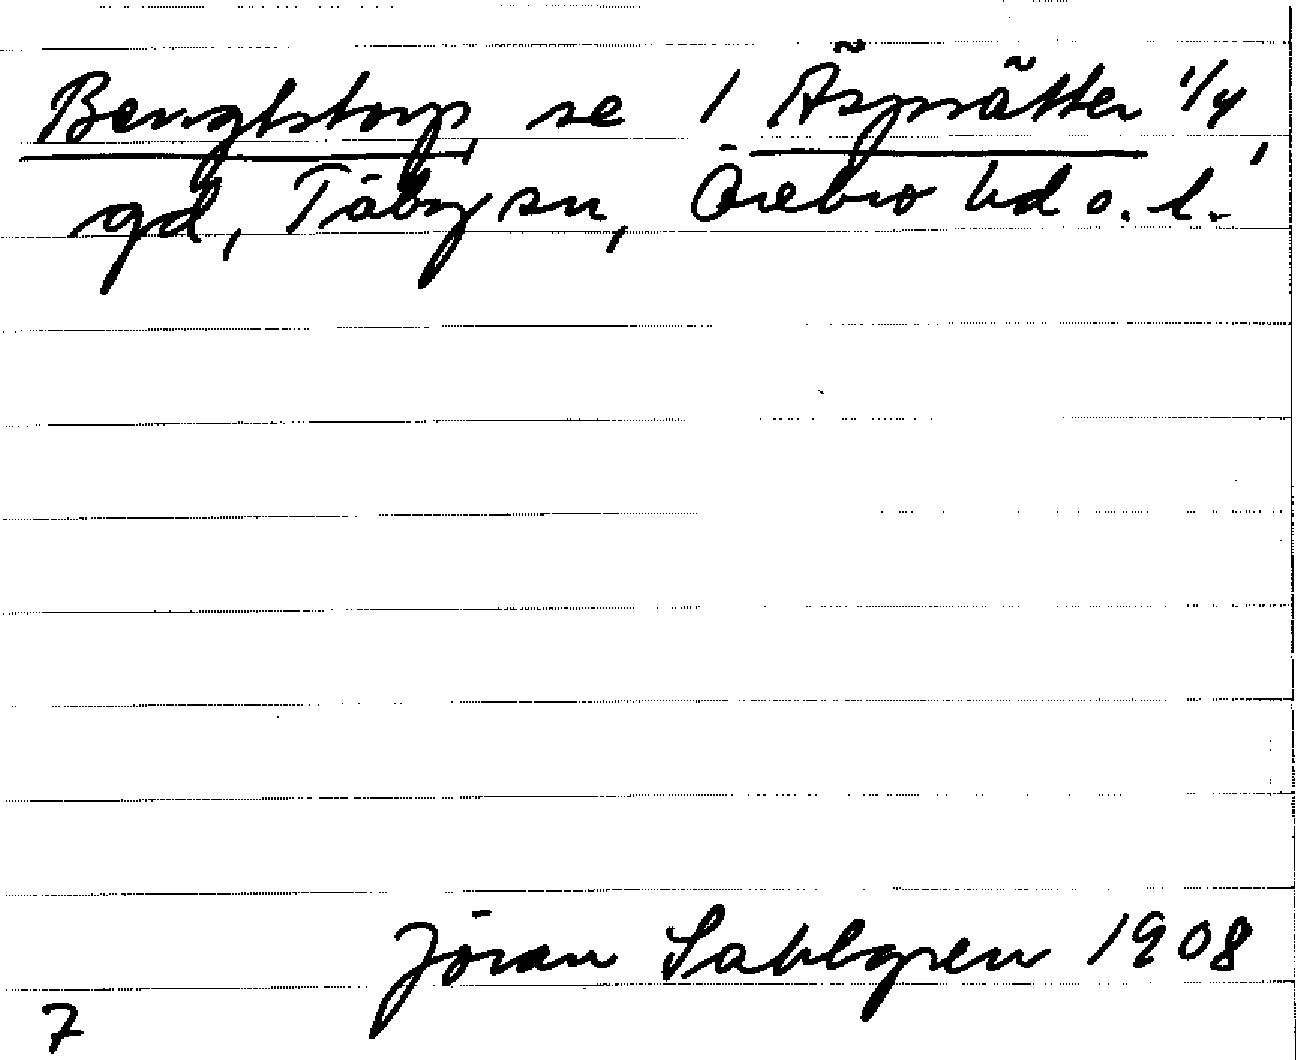 Bengtstorp, se 1 Äspsätter 1/4,
gd, Täby sn, Örebro hd o. l.
Jöran Sahlgren 1908
7